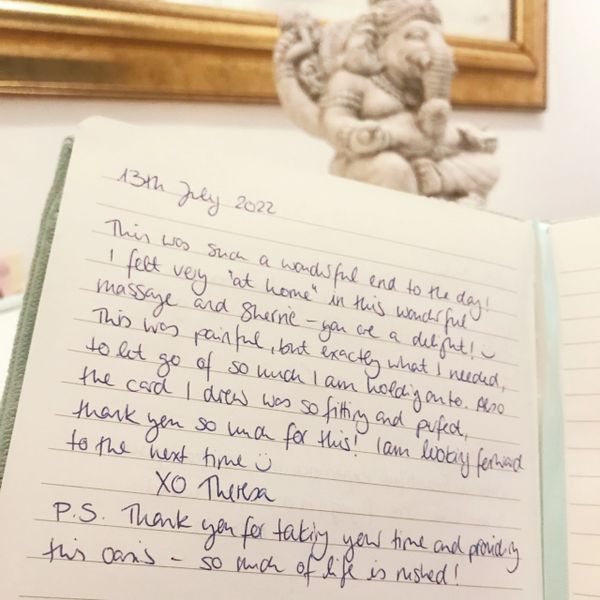 13th July 2022
This was such a wonderful end to the day!
I felt very "at home" in this wonderful
massage and Sherrie – you are a delight! :)
This was painful, but exactly what I needed,
to let go of so much I am holding onto. Also
the card I drew was so fitting and perfect,
thank you so much for this! I am looking forward
to the next time :)
XO Theresa
P.S. Thank you for taking your time and providing
this oasis – so much of life is rushed!